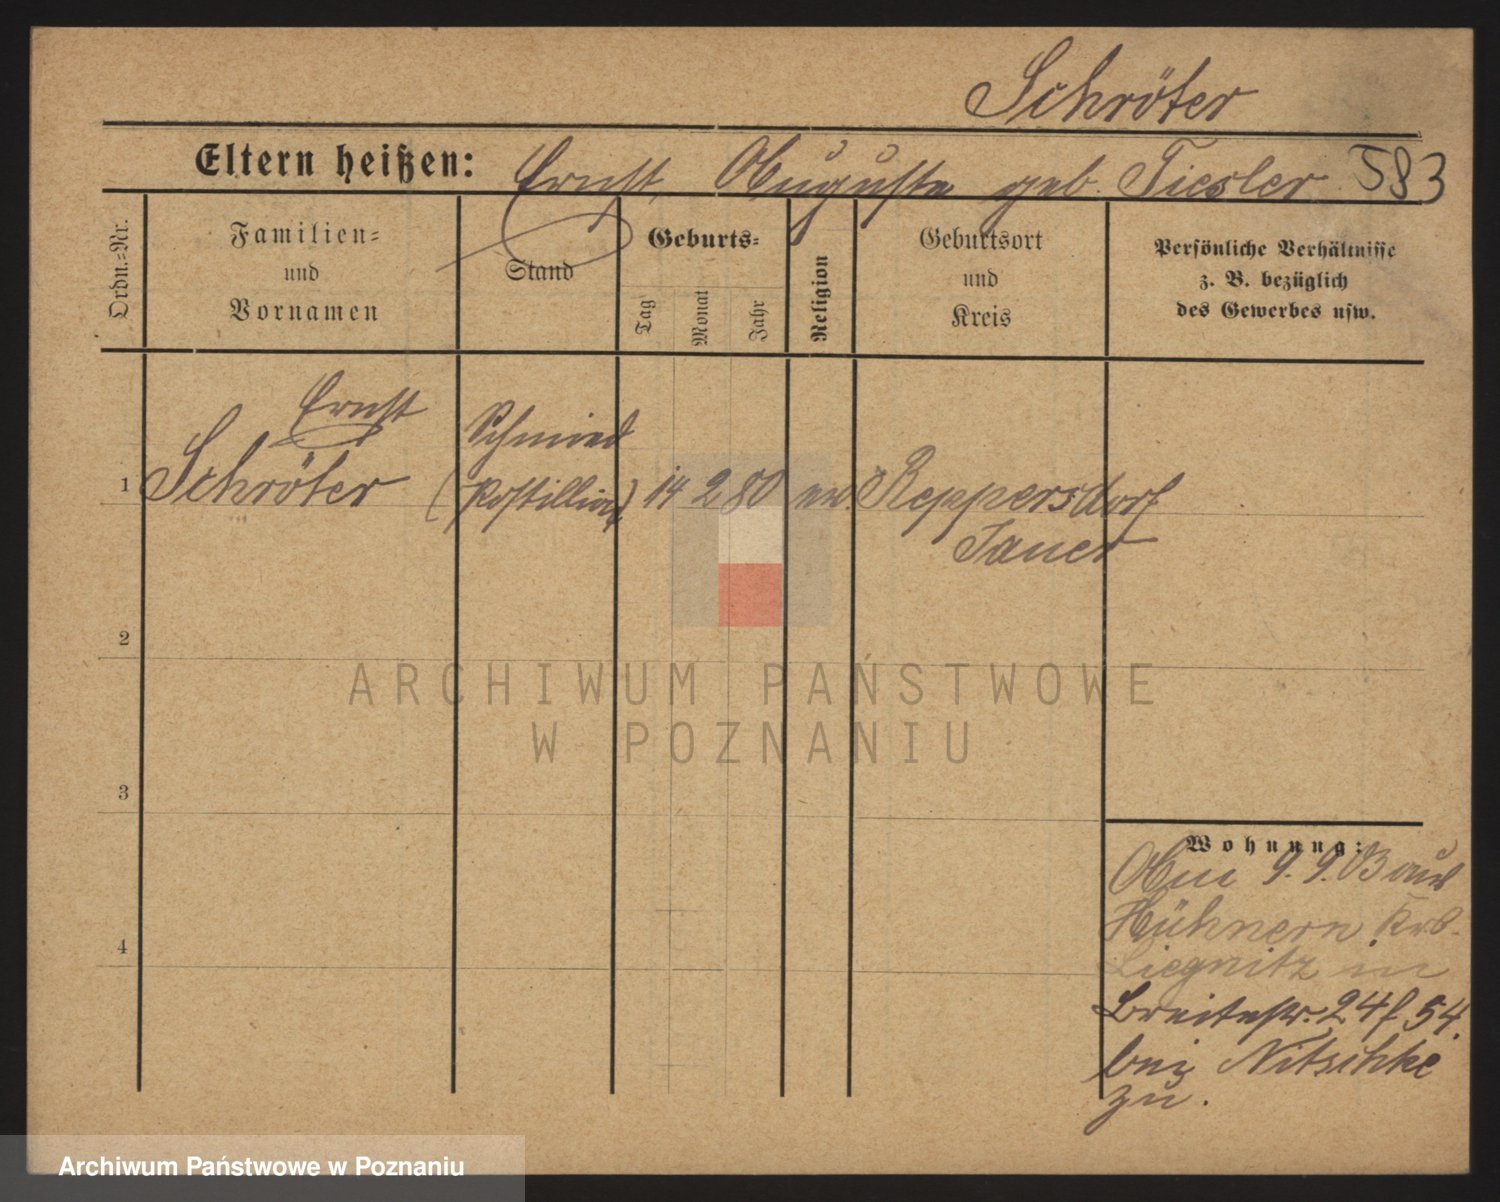 Schröter
Eltern heißen: Ernst, Auguste geb. Tiesler 583
Ordn.=Nr.
Familien=
und
Vornamen
Stand
Geburts=
Tag
Monat
Jahr
Religion
Geburtsort
und
Kreis
Persönliche Verhältnisse
z. B. bezüglich
des Gewerbes usw.
Ernst
Schmied
1 Schröter (Postillion) 14 2 80 ev. Reppersdorf
Jauer
2
3
4
Wohnung:
Am 9. 9. 03 aus
Hühnern, Krs.
Liegnitz in
Breitestr. 24 f 54.
bei Nitschke
zu.
ARCHIWUM PAŃSTWOWE
W POZNANIU
Archiwum Państwowe w Poznaniu